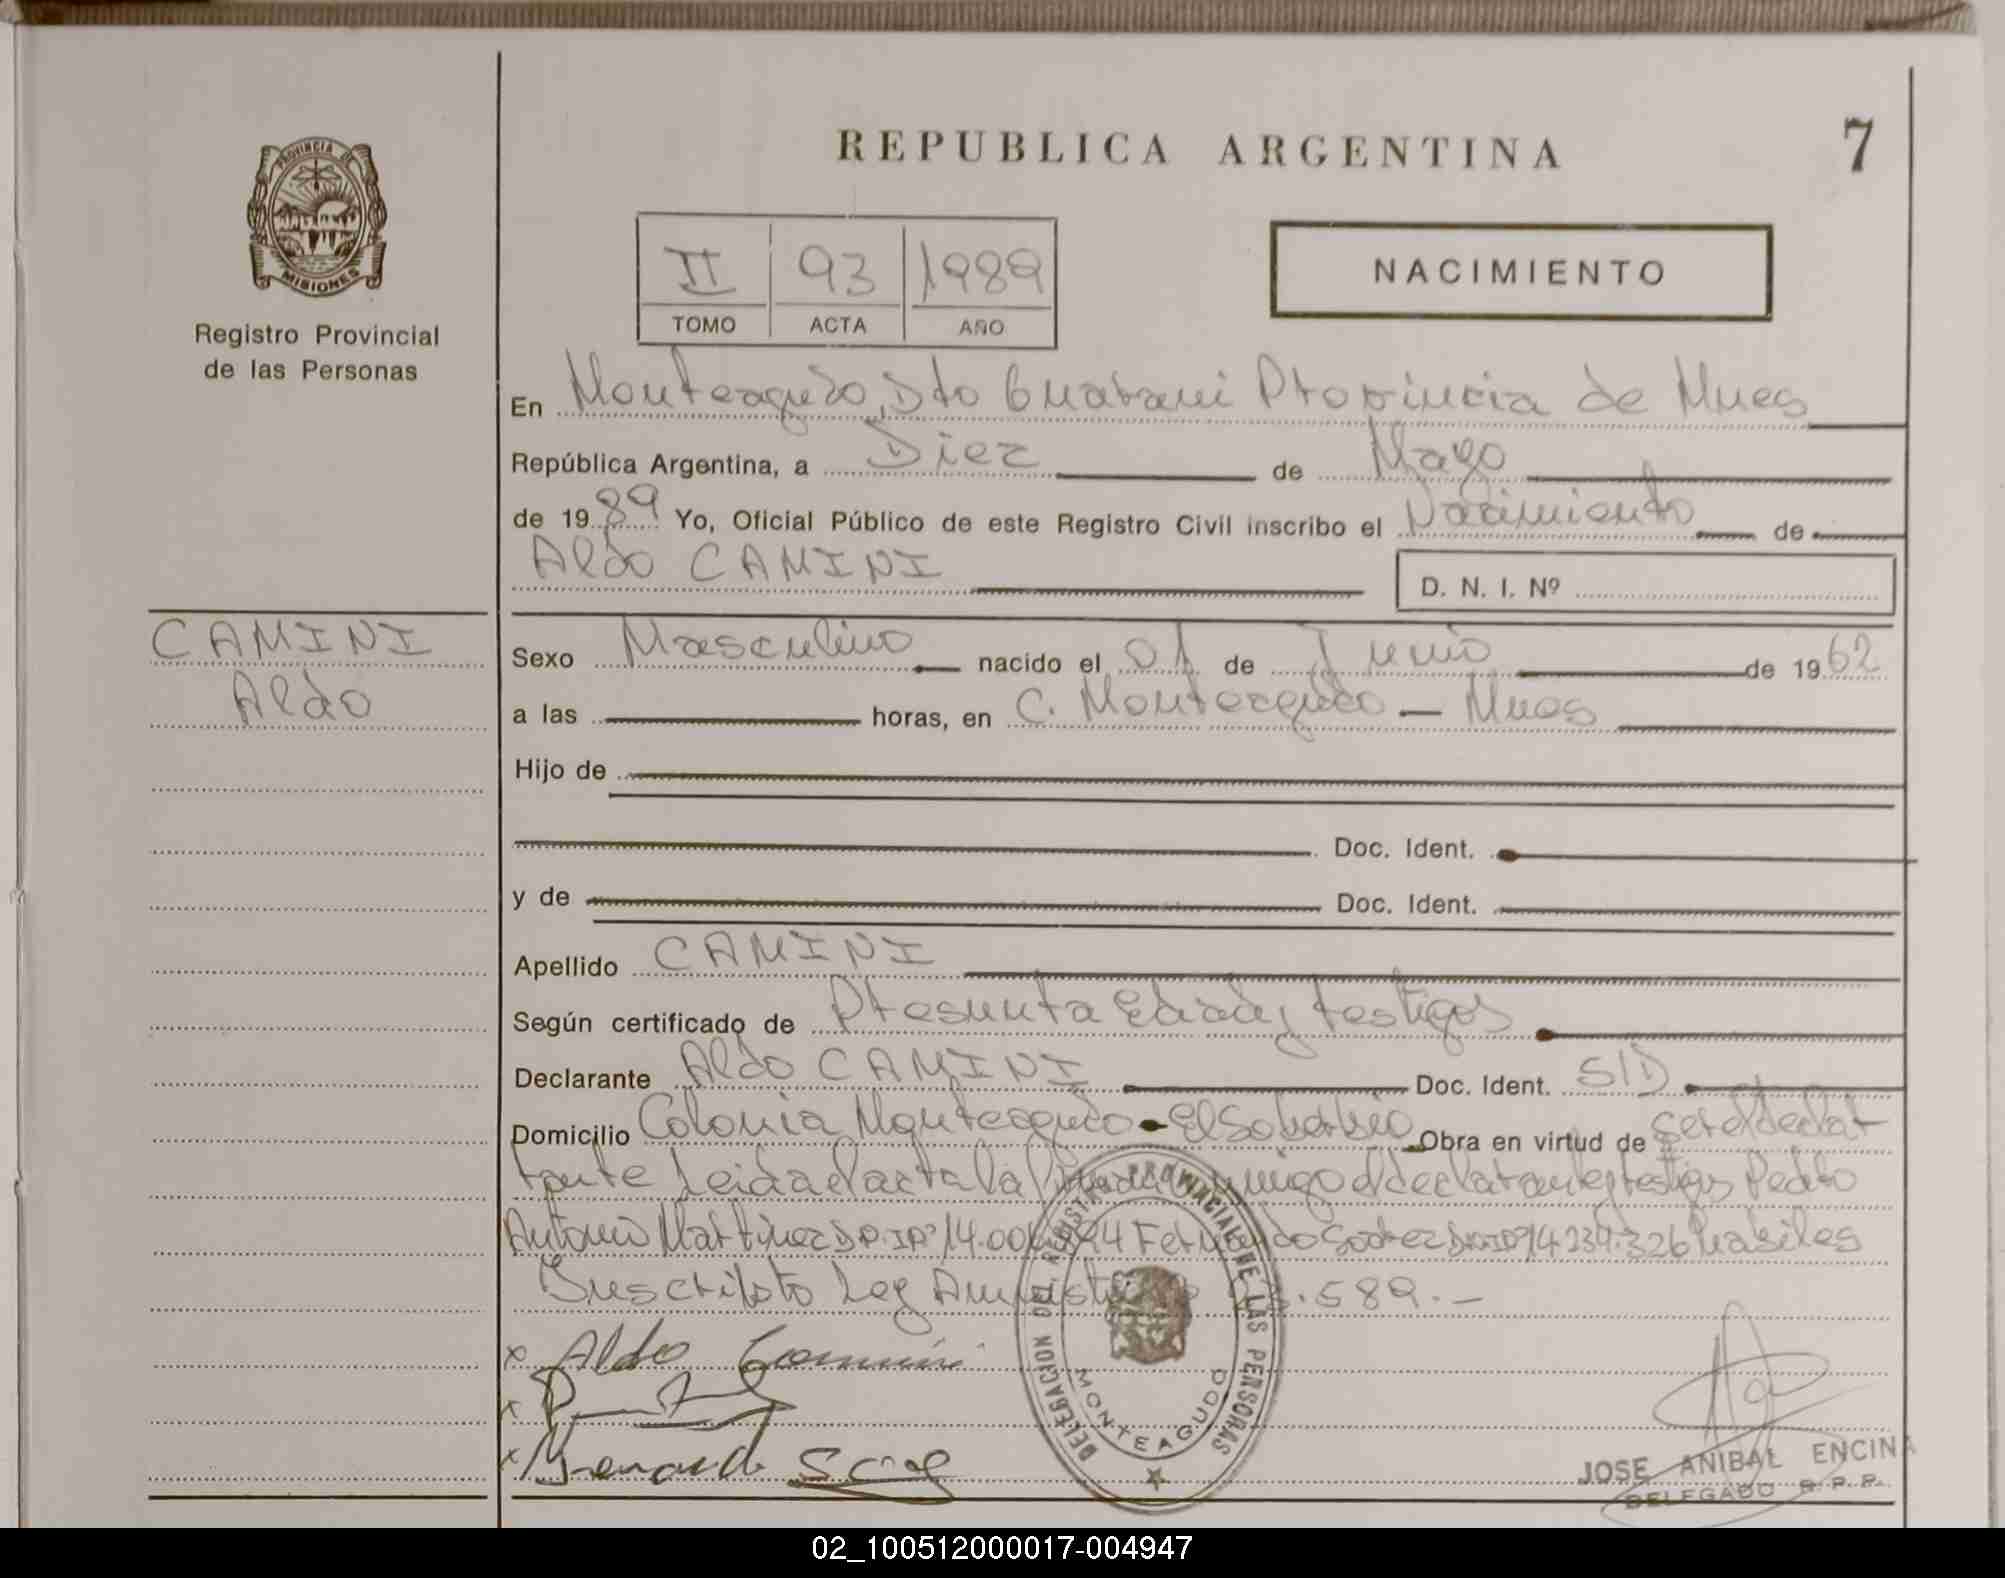 REPUBLICA ARGENTINA
7
PROVINCIA DE
MISIONES
Registro Provincial
de las Personas
II 93 1989
TOMO ACTA AÑO
NACIMIENTO
En Monteagudo, Dto Guarani Provincia de Mnes
República Argentina, a Diez de Mayo
de 1989 Yo, Oficial Público de este Registro Civil inscribo el Nacimiento de
Aldo CAMINI
D. N. I. Nº
CAMINI
Aldo
Sexo Masculino nacido el 01 de Junio de 1962
a las horas, en C. Monteagudo — Mnes
Hijo de
Doc. Ident.
y de Doc. Ident.
Apellido CAMINI
Según certificado de Presunta Edad y testigos
Declarante Aldo CAMINI Doc. Ident. S/D
Domicilio Colonia Monteagudo - El Soberbio Obra en virtud de ser el declar
rante Leida el acta la conmigo el declarante y testigos Pedro
Antonio Martinez 14.00 94 14.234.326 habiles
Suscripto Ley 589.—
x Aldo Camini
x
x
DELEGACION DEL REGISTRO PROVINCIAL DE LAS PERSONAS
MONTEAGUDO
JOSE ANIBAL ENCINA
DELEGADO R.P.P.
02_100512000017-004947